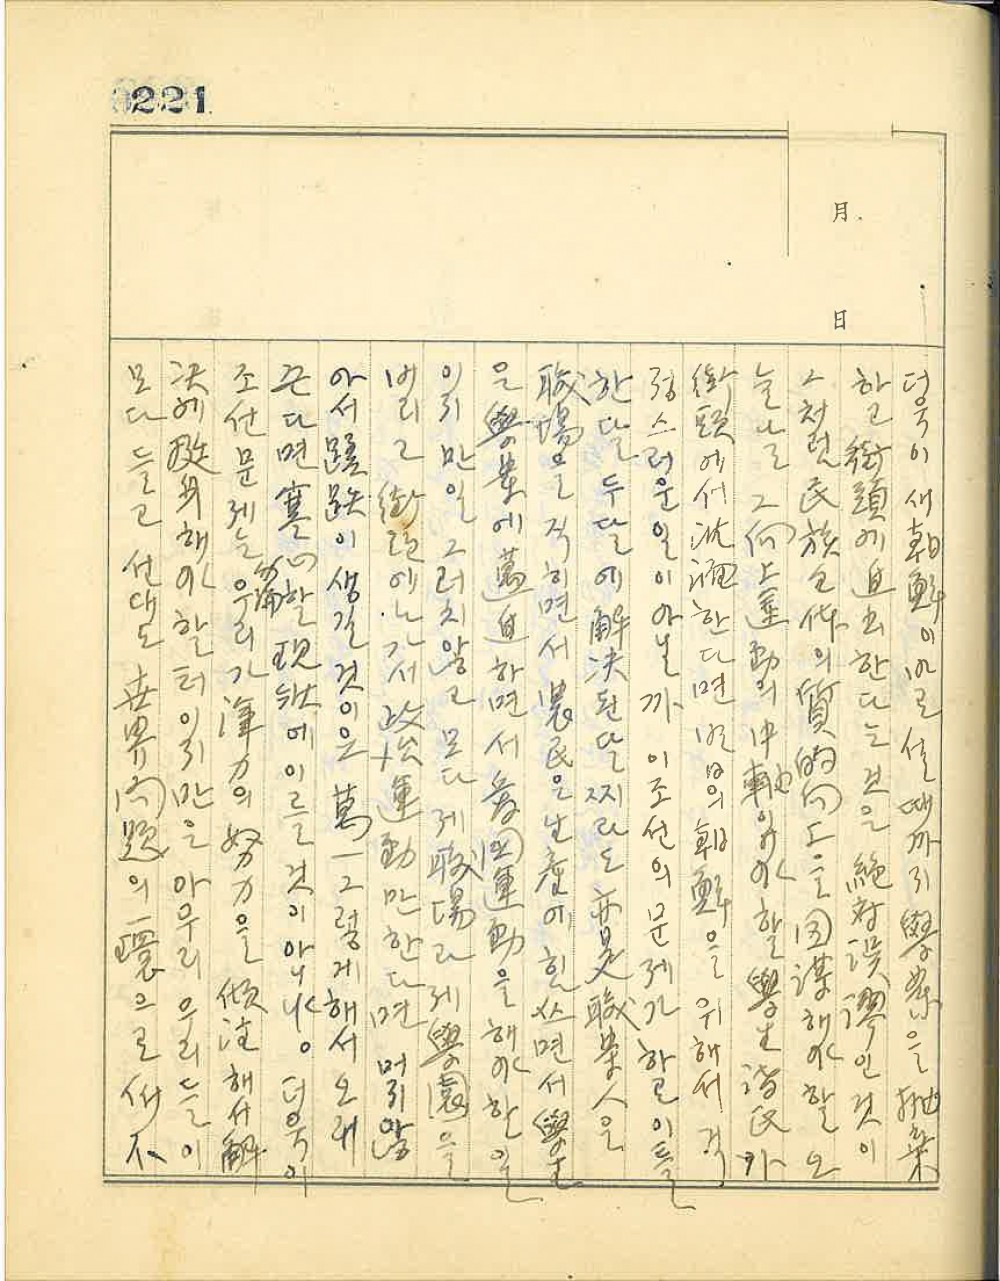 221
月
日
더욱이 새朝鮮이 바로 설 때까지 學業을 抛棄
하고 街頭에 進出한다는 것은 絶對誤謬인 것이
스처럼 民族全体의 質的向上을 圖謀해야 할 오
늘날 그 向上運動의 中軸이 되야 할 學生諸氏가
街頭에서 沈湎한다면 明日의 朝鮮을 위해서 걱
정스러운 일이 아닐까 이 조선의 문제가 하로 이틀
한달 두달에 解決된달찌라도 亦是 職業人은
職場을 직히면서 農民은 生産에 힘쓰면서 學生
은 學業에 邁進하면서 參國運動을 해야 한 일
이지 만일 그러치 않고 모다 제 職場과 제 學園을
버리고 街頭에 나가서 政治運動만 한다면 머지 않
아서 蹉跌이 생길 것이은 萬一 그렇게 해서 오래
끈다면 寒心할 現狀에 이를 것이 아니냐。 더욱이
조선 문제는 우리가 渾力의 努力을 傾注해서 解
決에 啟 해야 할 터이지만은 아무리 우리들이
모다 들고 선대도 世界問題의 一環으로 서 不